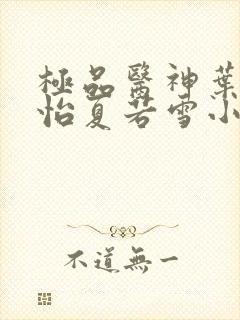 極品醫神葉
怡夏若雪小
不道無一